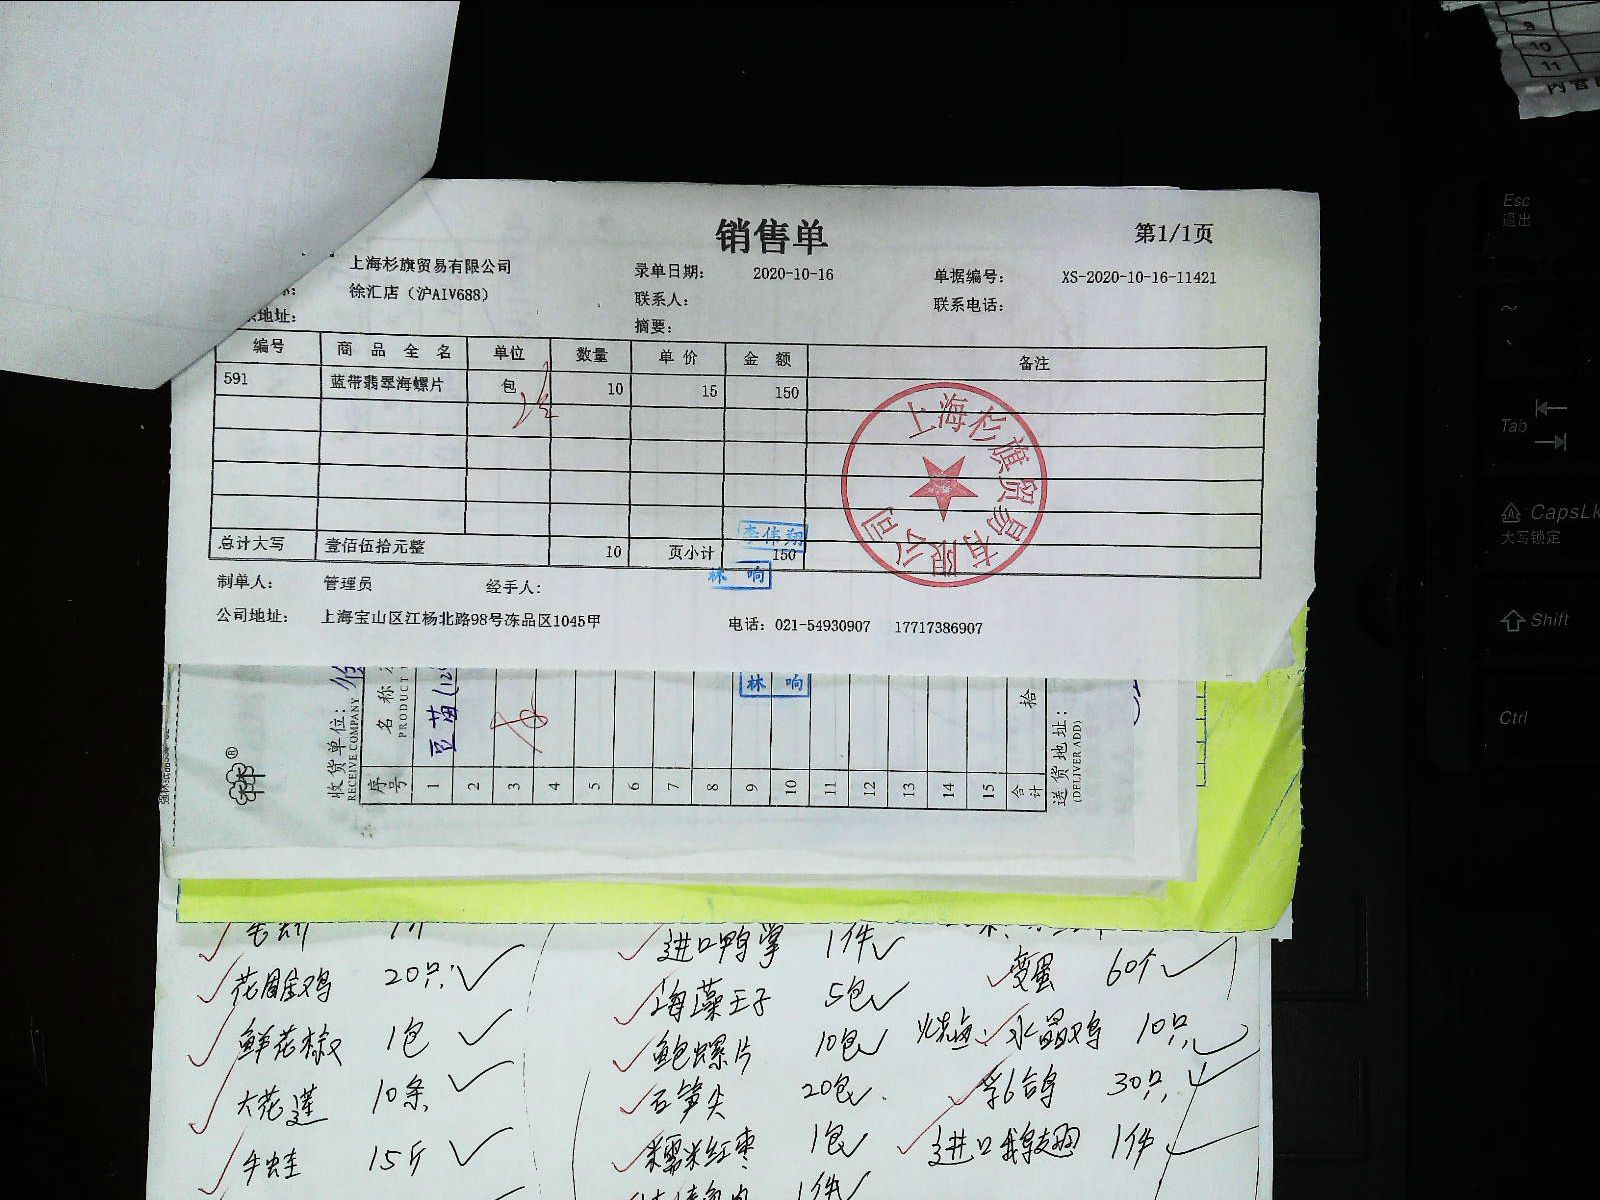 销售单
第1/1页
上海杉旗贸易有限公司 录单日期： 2020-10-16 单据编号： XS-2020-10-16-11421
徐汇店（沪AIV688） 联系人： 联系电话：
地址： 摘要：
编号 商品全名 单位 数量 单价 金额 备注
591 蓝带翡翠海螺片 包 10 15 150
上海杉旗贸易有限公司
李伟翔
总计大写 壹佰伍拾元整 10 页小计 150
林响
制单人： 管理员 经手人：
公司地址： 上海宝山区江杨北路98号冻品区1045甲 电话：021-54930907 17717386907
林响
收货单位：
RECEIVE COMPANY
名称
PRODUCT
豆苗
序号 1 2 3 4 5 6 7 8 9 10 11 12 13 14 15 合计
拾
送货地址：
(DELIVER ADD)
进口鸭掌 1件
花雕鸡 20只 海藻王子 5包 变蛋 60个
鲜花椒 1包 鲍螺片 10包 水晶鸡 10只
大花莲 10条 石笋尖 20包 乳鸽 30只
牛蛙 15斤 糯米红枣 1包 进口鹅翅 1件
1件
9
10
11
Esc
退出
~
Tab
CapsLk
大写锁定
Shift
Ctrl